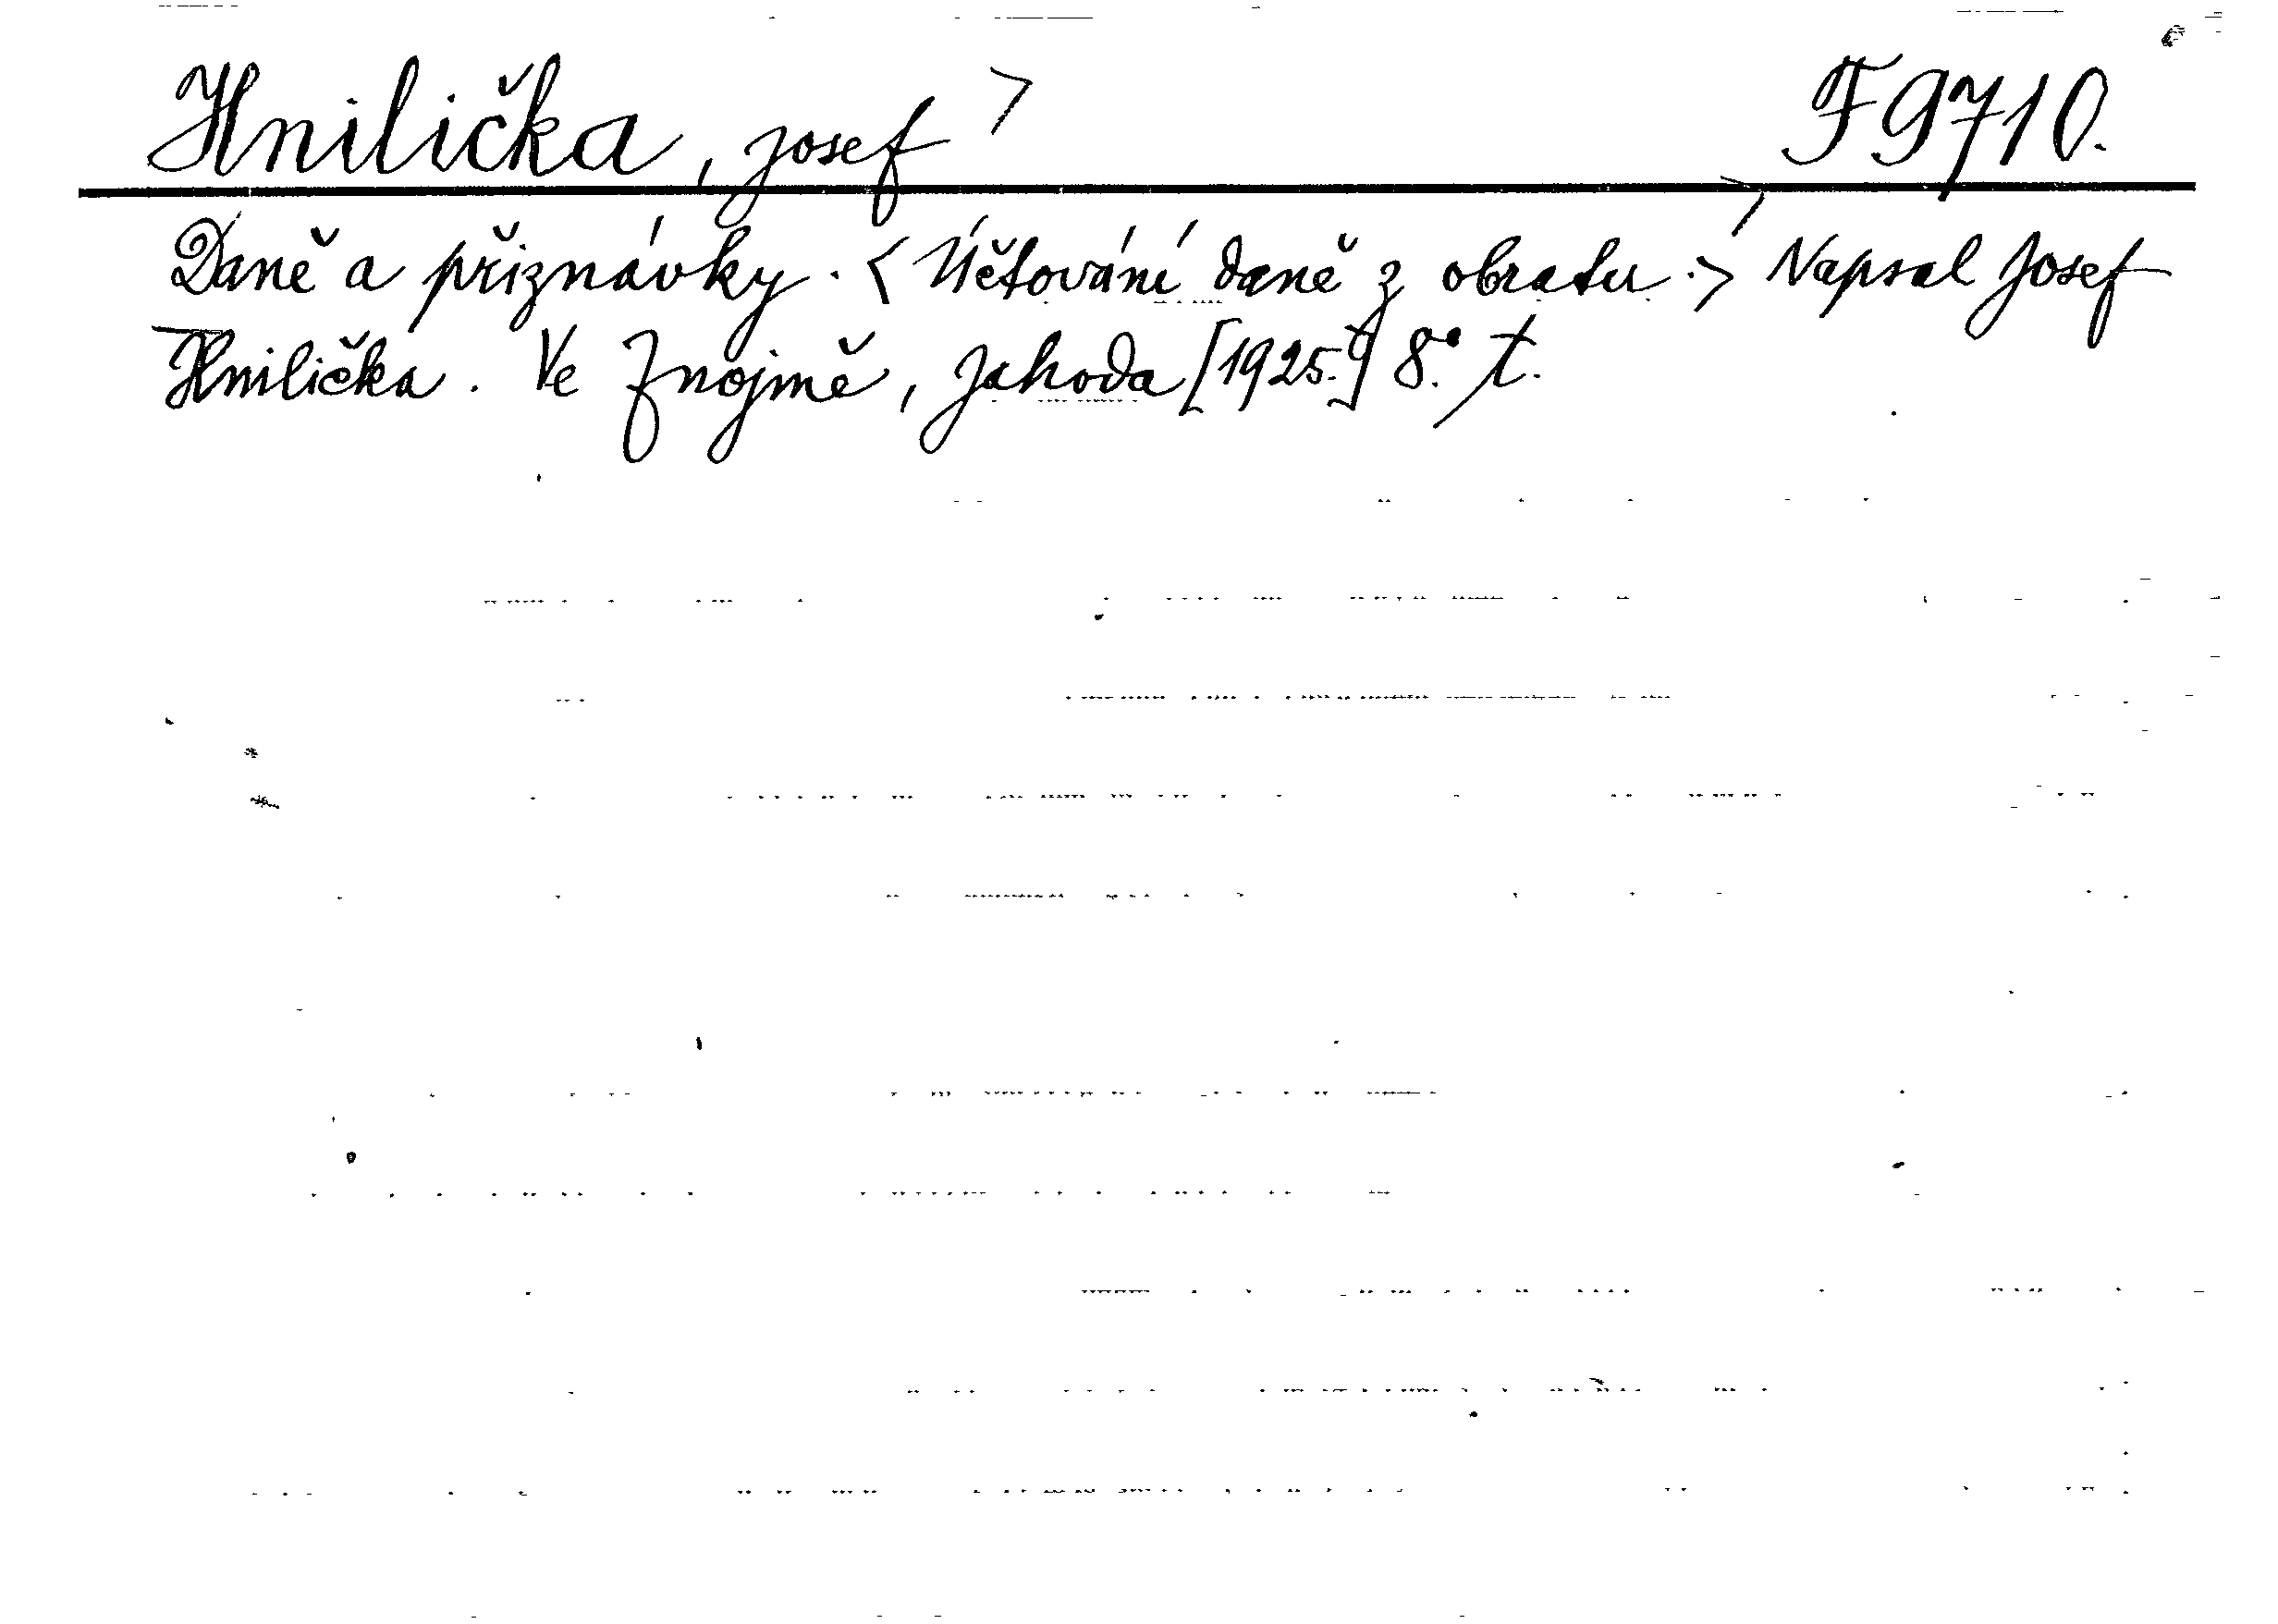 Hnilička, Josef F9710.
Daně a přiznávky. <Účtování daně z obratu.> Napsal Josef
Hnilička. Ve Znojmě, Jahoda [1925.] 8.° t.